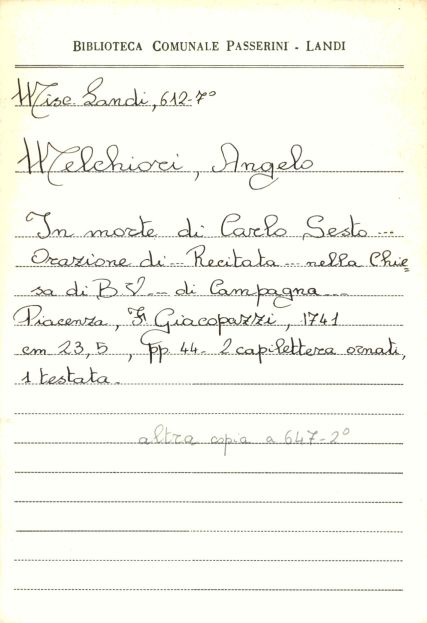 BIBLIOTECA COMUNALE PASSERINI - LANDI
Misc. Landi, 612-7°
Melchiori, Angelo
In morte di Carlo Sesto ...
Orazione di ... Recitata ... nella Chie=
sa di B V ... di Campagna ...
Piacenza, F. Giacopazzi, 1741
cm 23,5 , pp 44. 2 capilettera ornati,
1 testata.
altra copia a 647-2°